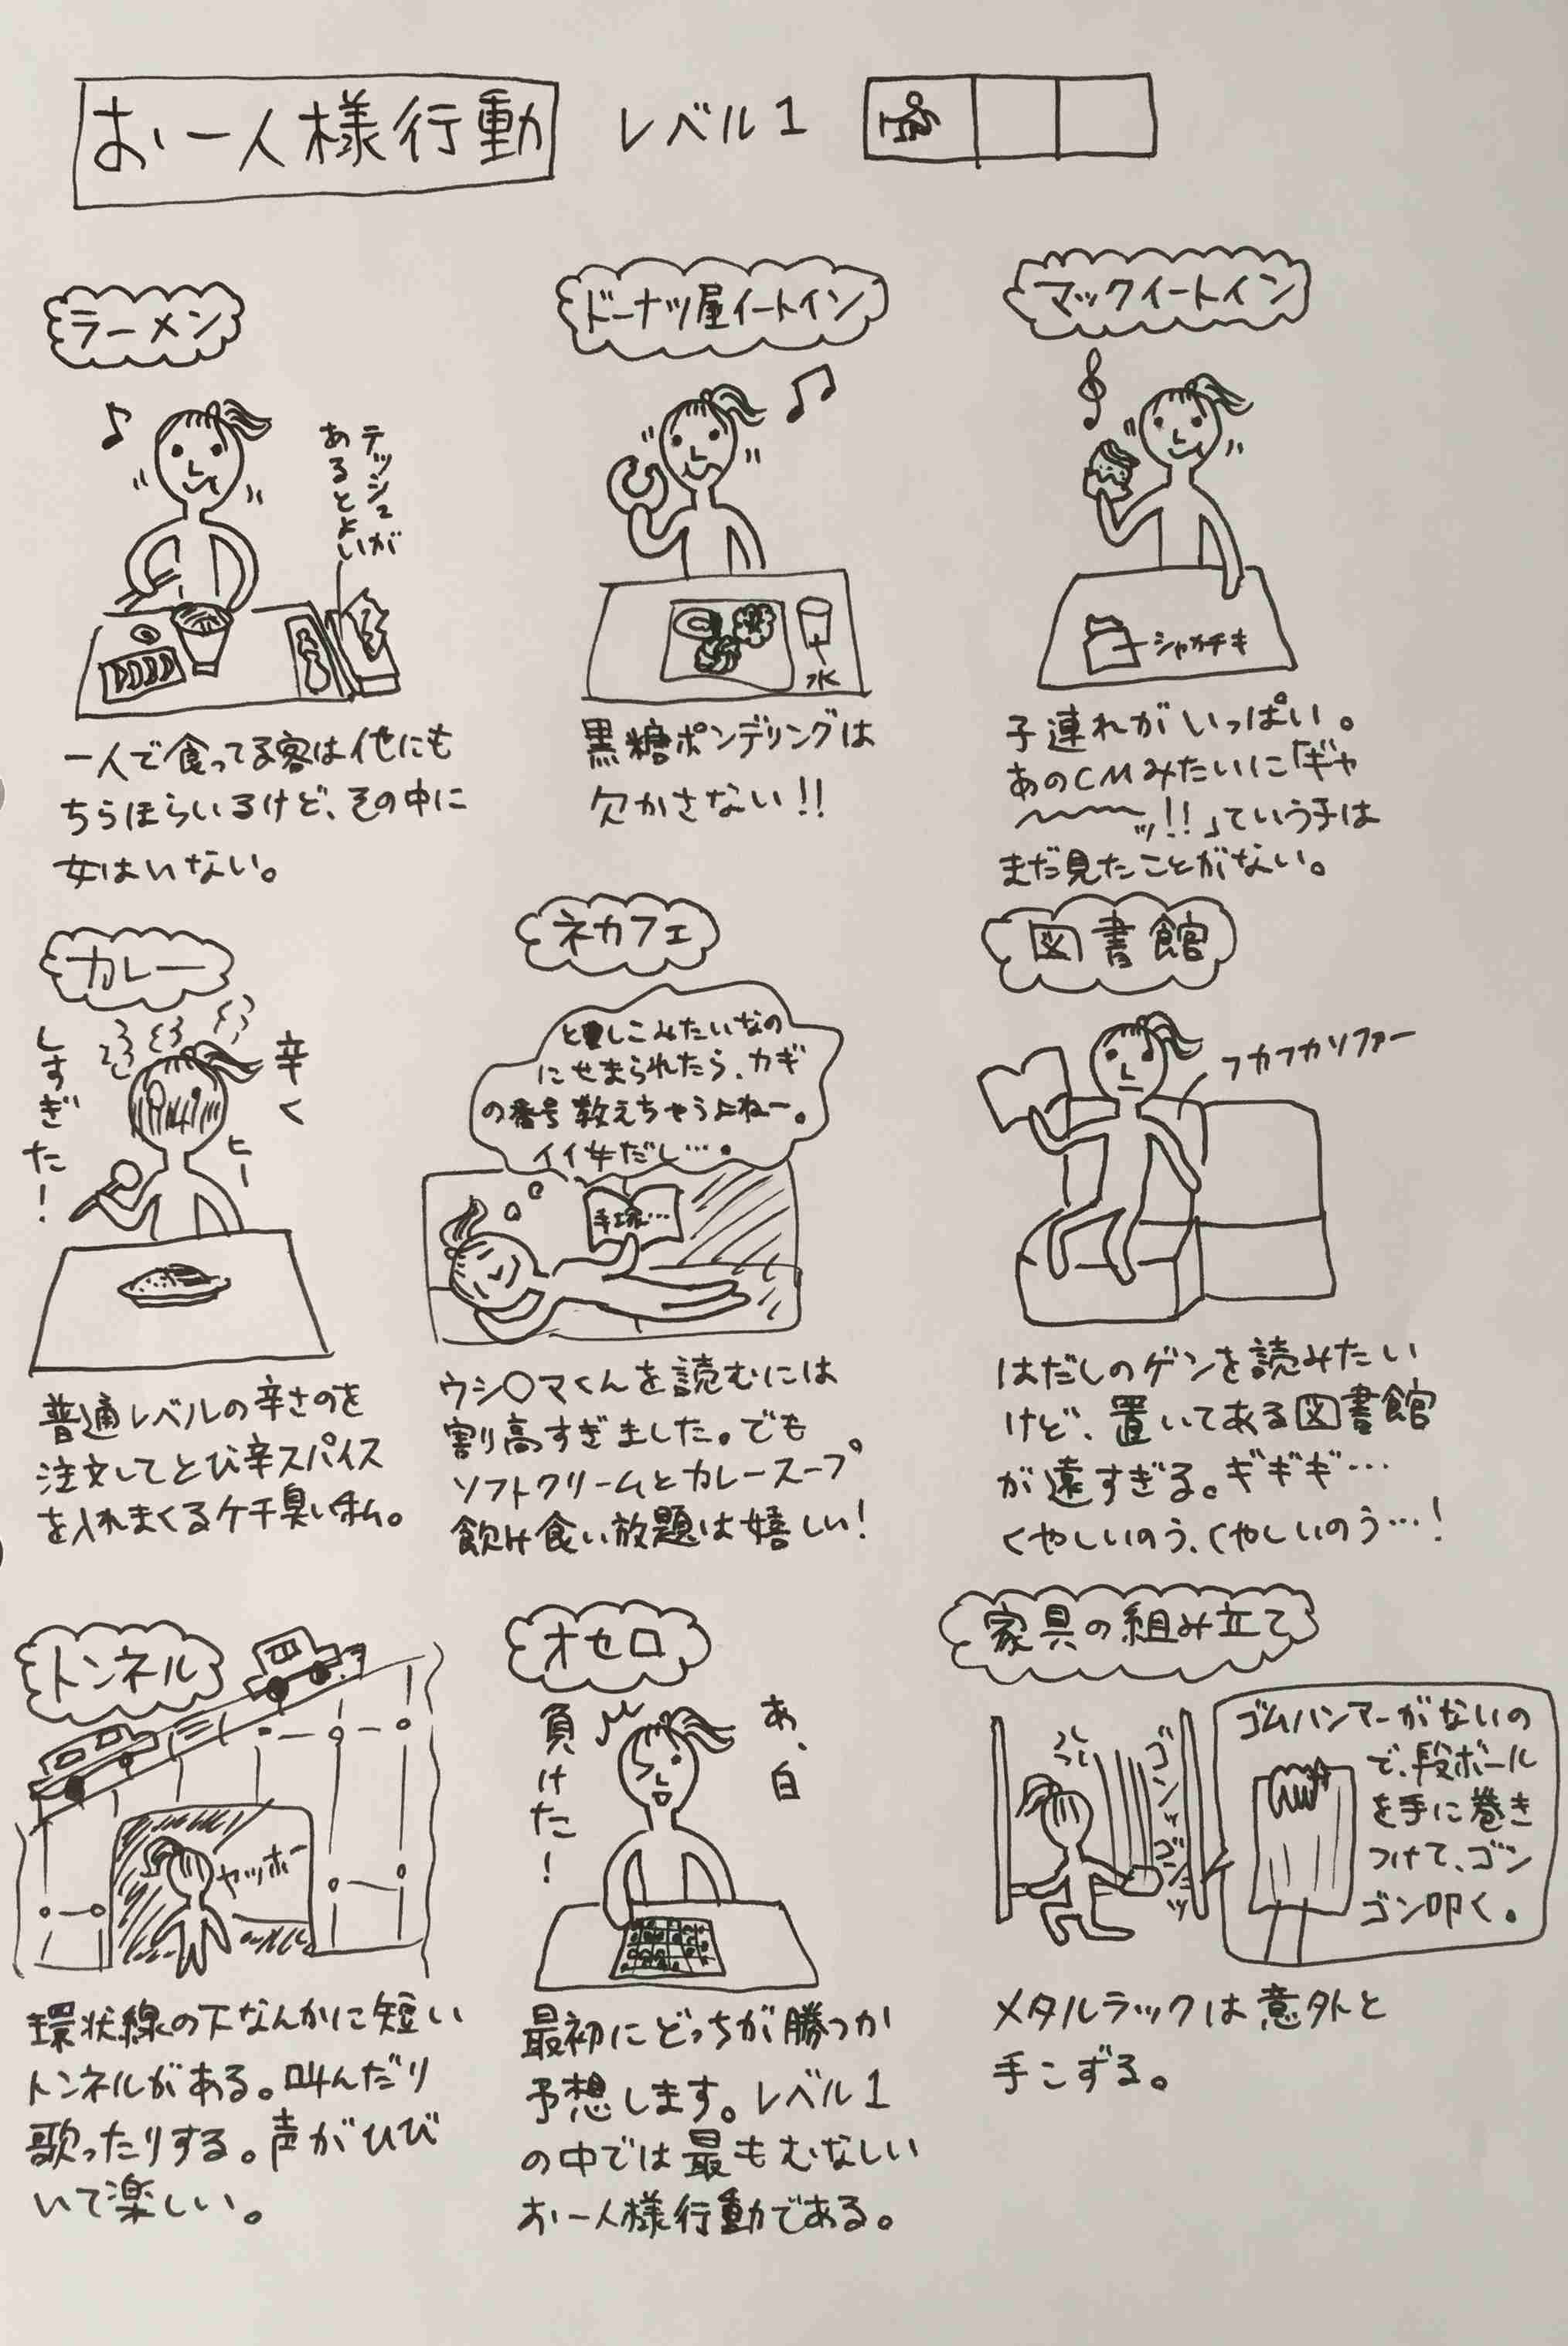 お一人様行動
レベル1
ラーメン
ティッシュが
あるとよい
一人で食ってる客は他にも
ちらほらいるけど、その中に
女はいない。
ドーナツ屋イートイン
水
黒糖ポンデリングは
欠かさない!!
マックイートイン
シャカチキ
子連れがいっぱい。
あのCMみたいに「ギャ
〜〜〜ッ!!」ていう子は
まだ見たことがない。
カレー
辛く
しすぎた!
ヒー
普通レベルの辛さのを
注文してとび辛スパイス
を入れまくるケチ臭い私。
ネカフェ
しこみたいなの
にせまられたら、カギ
の番号教えちゃうよねー。
イイ女だし…。
手塚…
ウシ〇マくんを読むには
割高すぎました。でも
ソフトクリームとカレースープ
飲み食い放題は嬉しい!
図書館
フカフカソファー
はだしのゲンを読みたい
けど、置いてある図書館
が遠すぎる。ギギギ…
くやしいのう、くやしいのう…!
トンネル
ヤッホー
環状線の下なんかに短い
トンネルがある。叫んだり
歌ったりする。声がひび
いて楽しい。
オセロ
あ、白
負けた!
最初にどっちが勝つか
予想します。レベル1
の中では最もむなしい
お一人様行動である。
家具の組み立て
ゴンッ
ゴンッ
ゴムハンマーがないの
で、段ボール
を手に巻き
つけて、ゴン
ゴン叩く。
メタルラックは意外と
手こずる。